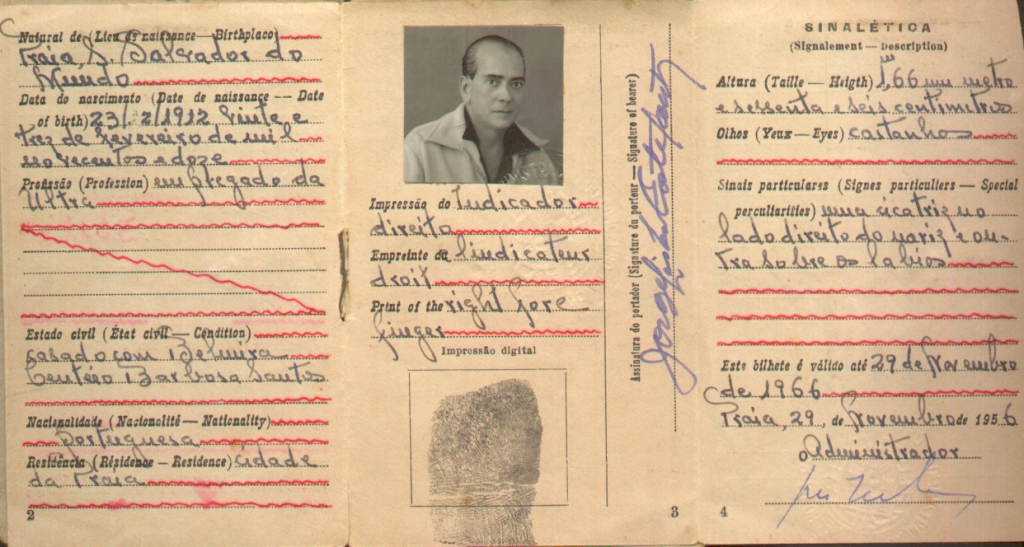 Natural de (Lieu de naissance — Birthplace)
Praia, S. Salvador do
Mundo
Data do nascimento (Date de naissance — Date
of birth) 23/2/1912 Vinte e
trez de Fevereiro de mil
novecentos e doze
Profissão (Profession) empregado da
Ultra
Estado civil (État civil — Condition)
casado com Belmira
Centeio Barbosa Santos
Nacionalidade (Nacionalité — Nationality)
Portuguesa
Residência (Résidence — Residence) cidade
da Praia
2
Impressão do Indicador
direito
Empreinte de l'indicateur
droit
Print of the right fore
finger
Impressão digital
Assinatura do portador (Signature du porteur — Signature of bearer)
3
SINALÉTICA
(Signalement — Description)
Altura (Taille — Heigth) 1,66 um metro
e sessenta e seis centimetros
Olhos (Yeux — Eyes) castanhos
Sinais particulares (Signes particuliers — Special
perculiarities) uma cicatriz no
lado direito do nariz e ou-
tra sobre os labios
Este bilhete é válido até 29 de Novembro
de 1966
Praia, 29, de Novembro de 1956
o Administrador
4